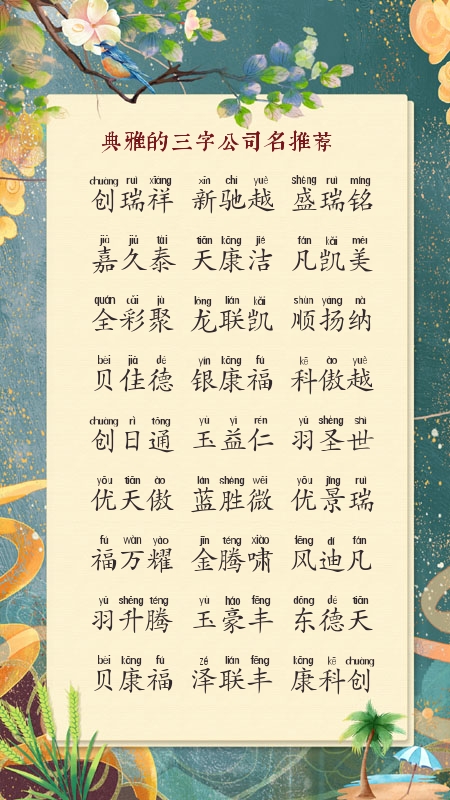 典雅的三字公司名推荐
chuàng ruì xiáng xīn chí yuè shèng ruì míng
创瑞祥 新驰越 盛瑞铭
jiā jiǔ tài tiān kāng jié fán kǎi měi
嘉久泰 天康洁 凡凯美
quán cǎi jù lóng lián kǎi shùn yáng nà
全彩聚 龙联凯 顺扬纳
bèi jiā dé yín kāng fú kē ào yuè
贝佳德 银康福 科傲越
chuàng rì tōng yù yì rén yǔ shèng shì
创日通 玉益仁 羽圣世
yōu tiān ào lán shèng wēi yōu jǐng ruì
优天傲 蓝胜微 优景瑞
fú wàn yào jīn téng xiào fēng dí fán
福万耀 金腾啸 风迪凡
yǔ shēng téng yù háo fēng dōng dé tiān
羽升腾 玉豪丰 东德天
bèi kāng fú zé lián fēng kāng kē chuàng
贝康福 泽联丰 康科创